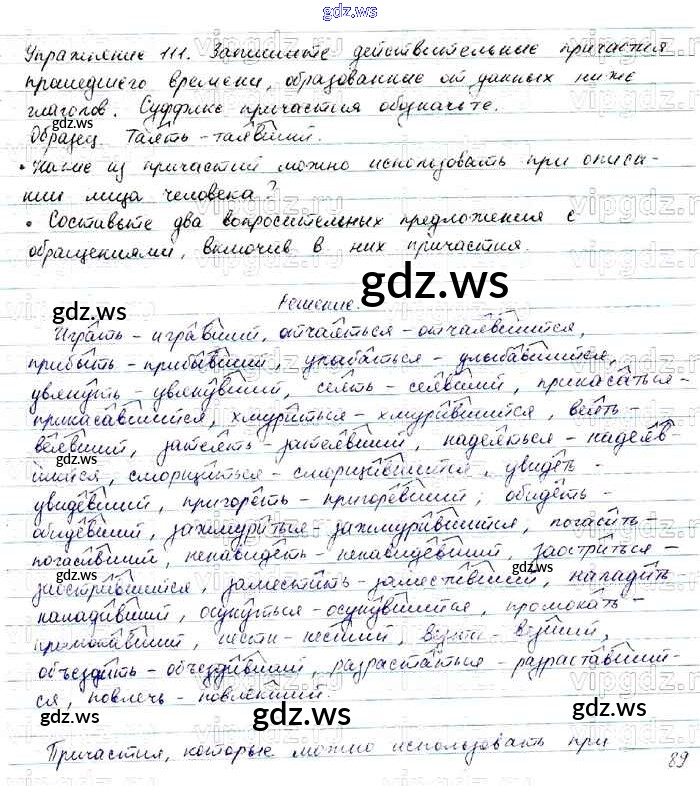 gdz.ws
Упражнение 111. Запишите действительные причастия
прошедшего времени, образованные от данных ниже
глаголов. Суффикс причастия обозначьте.
gdz.ws
Образец. Таять – таявший.
• Какие из причастий можно использовать при описа-
нии лица человека?
• Составьте два вопросительных предложения с
обращениями, включив в них причастия.
gdz.ws
gdz.ws
Решение.
Играть – игравший, отчаяться – отчаявшийся,
прибыть – прибывший, улыбаться – улыбавшийся,
увянуть – увянувший, сеять – сеявший, прикасаться –
прикасавшийся, хмуриться – хмурившийся, веять –
веявший, затеять – затеявший, надеяться – надеяв-
шийся, сморщиться – сморщившийся, увидеть –
увидевший, пригореть – пригоревший, обидеть –
обидевший, зажмуриться – зажмурившийся, погасить –
погасивший, ненавидеть – ненавидевший, заостриться –
заострившийся, заместить – заместивший, наладить
наладивший, окунуться – окунувшийся, промокать –
промокавший, нести – нёсший, везти – вёзший,
объездить – объездивший, разрастаться – разраставший-
ся, повлечь – повлёкший.
gdz.ws
gdz.ws
gdz.ws
Причастия, которые можно использовать при
89